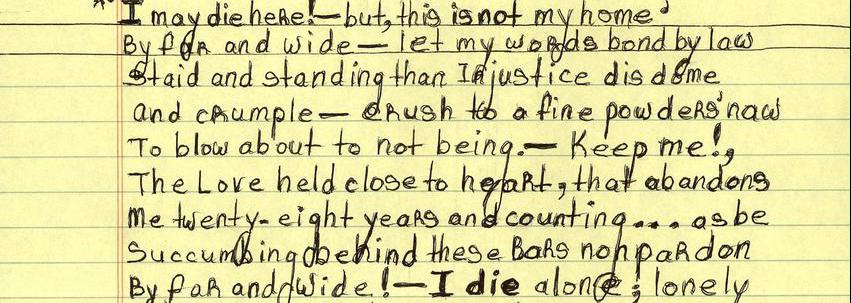 I may die here!—but, this is not my home
By far and wide— let my words bond by law
Staid and standing than Injustice dis dome
and crumple— crush to a fine powders' naw
To blow about to not being.— Keep me!,
The Love held close to heart, that abandons
Me twenty-eight years and counting.... as be
Succumbing behind these Bars noh pardon
By far and wide!—I die alone; lonely